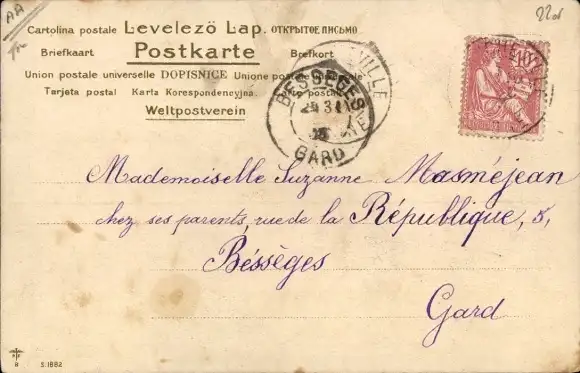 AA
22d
Cartolina postale Levelező Lap. ОТКРЫТОЕ ПИСЬМО
Briefkaart Postkarte Brefkort
Union postale universelle DOPISNICE Unione postale
Tarjeta postal Karta Korespondencyjna
Weltpostverein
VILLE
BESSÈGES
GARD
10
Mademoiselle Suzanne Masméjean
chez ses parents, rue de la République, 5,
Bésseges
Gard
8 S. 1882